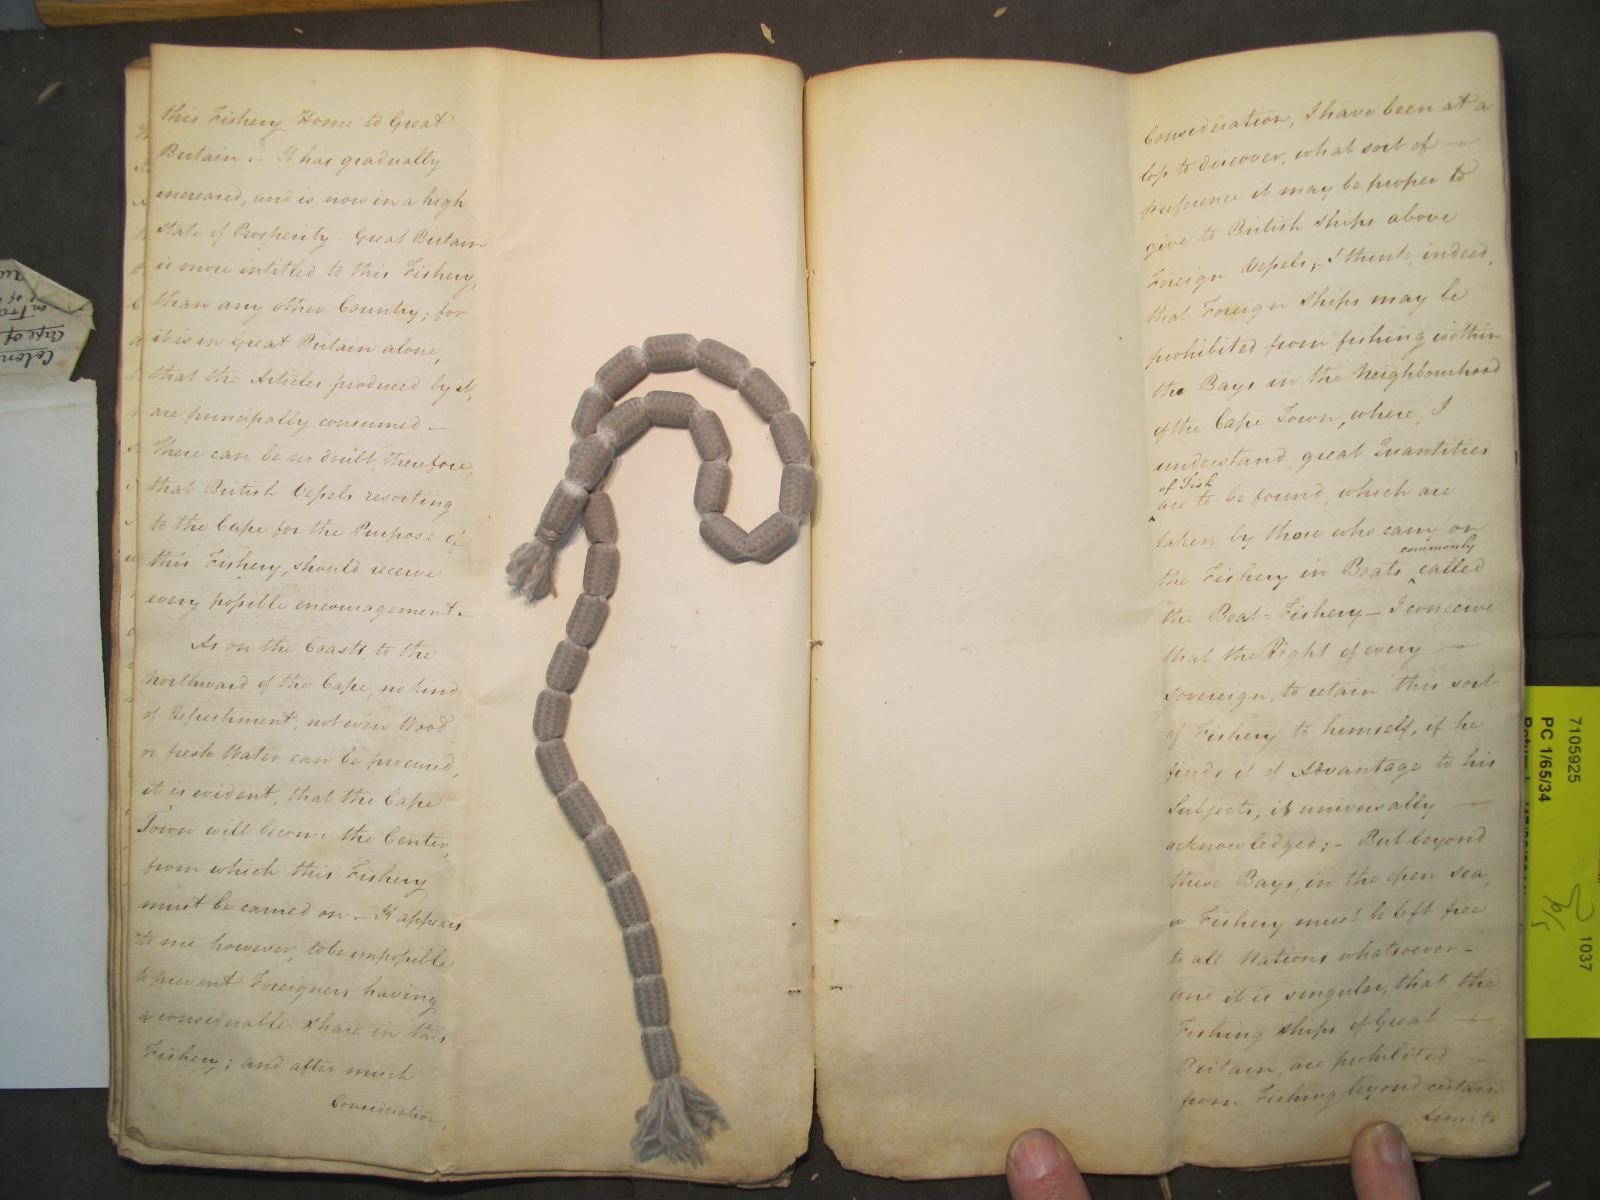 this Fishery Home to Great
Britain.- It has gradually
increased, and is now in a high
State of Prosperity - Great Britain
is more intitled to this Fishery,
than any other Country; for
it is in Great Britain alone,
that the Articles produced by it,
are principally consumed -
There can be no doubt, therefore,
that British Vessels resorting
to the Cape for the Purpose of
this Fishery, should receive
every possible encouragement -
As on the Coasts, to the
Northward of the Cape, no kind
of Refreshment, not even Wood
or fresh Water can be procured,
it is evident, that the Cape
Town will become the Center,
from which this Fishery
must be carried on - It appears
to me however, to be impossible
to prevent Foreigners having
a considerable share in this
Fishery; and after much
Consideration,
Consideration, I have been at a
loss to discover, what sort of -
preference it may be proper to
give to British ships above
Foreign Vessels;- I think, indeed,
that Foreign Ships may be
prohibited from fishing within
the Bays in the Neighbourhood
of the Cape Town, where, I
understand, great Quantities
of Fish
are to be found, which are
taken by those who carry on
commonly
the Fishery in Boats, called
the Boat=Fishery - I conceive
that the Right of every -
Sovereign, to retain this sort
of Fishery to himself, if he
finds it of Advantage to his
Subjects, is universally -
acknowledged;- But beyond
these Bays, in the open sea,
a Fishery must be left free
to all Nations whatsoever -
and it is singular, that the
Fishing ships of Great -
Britain, are prohibited -
from Fishing beyond certain
Limits
7105925
PC 1/65/34
1037
Colon
Cape of
on Tra